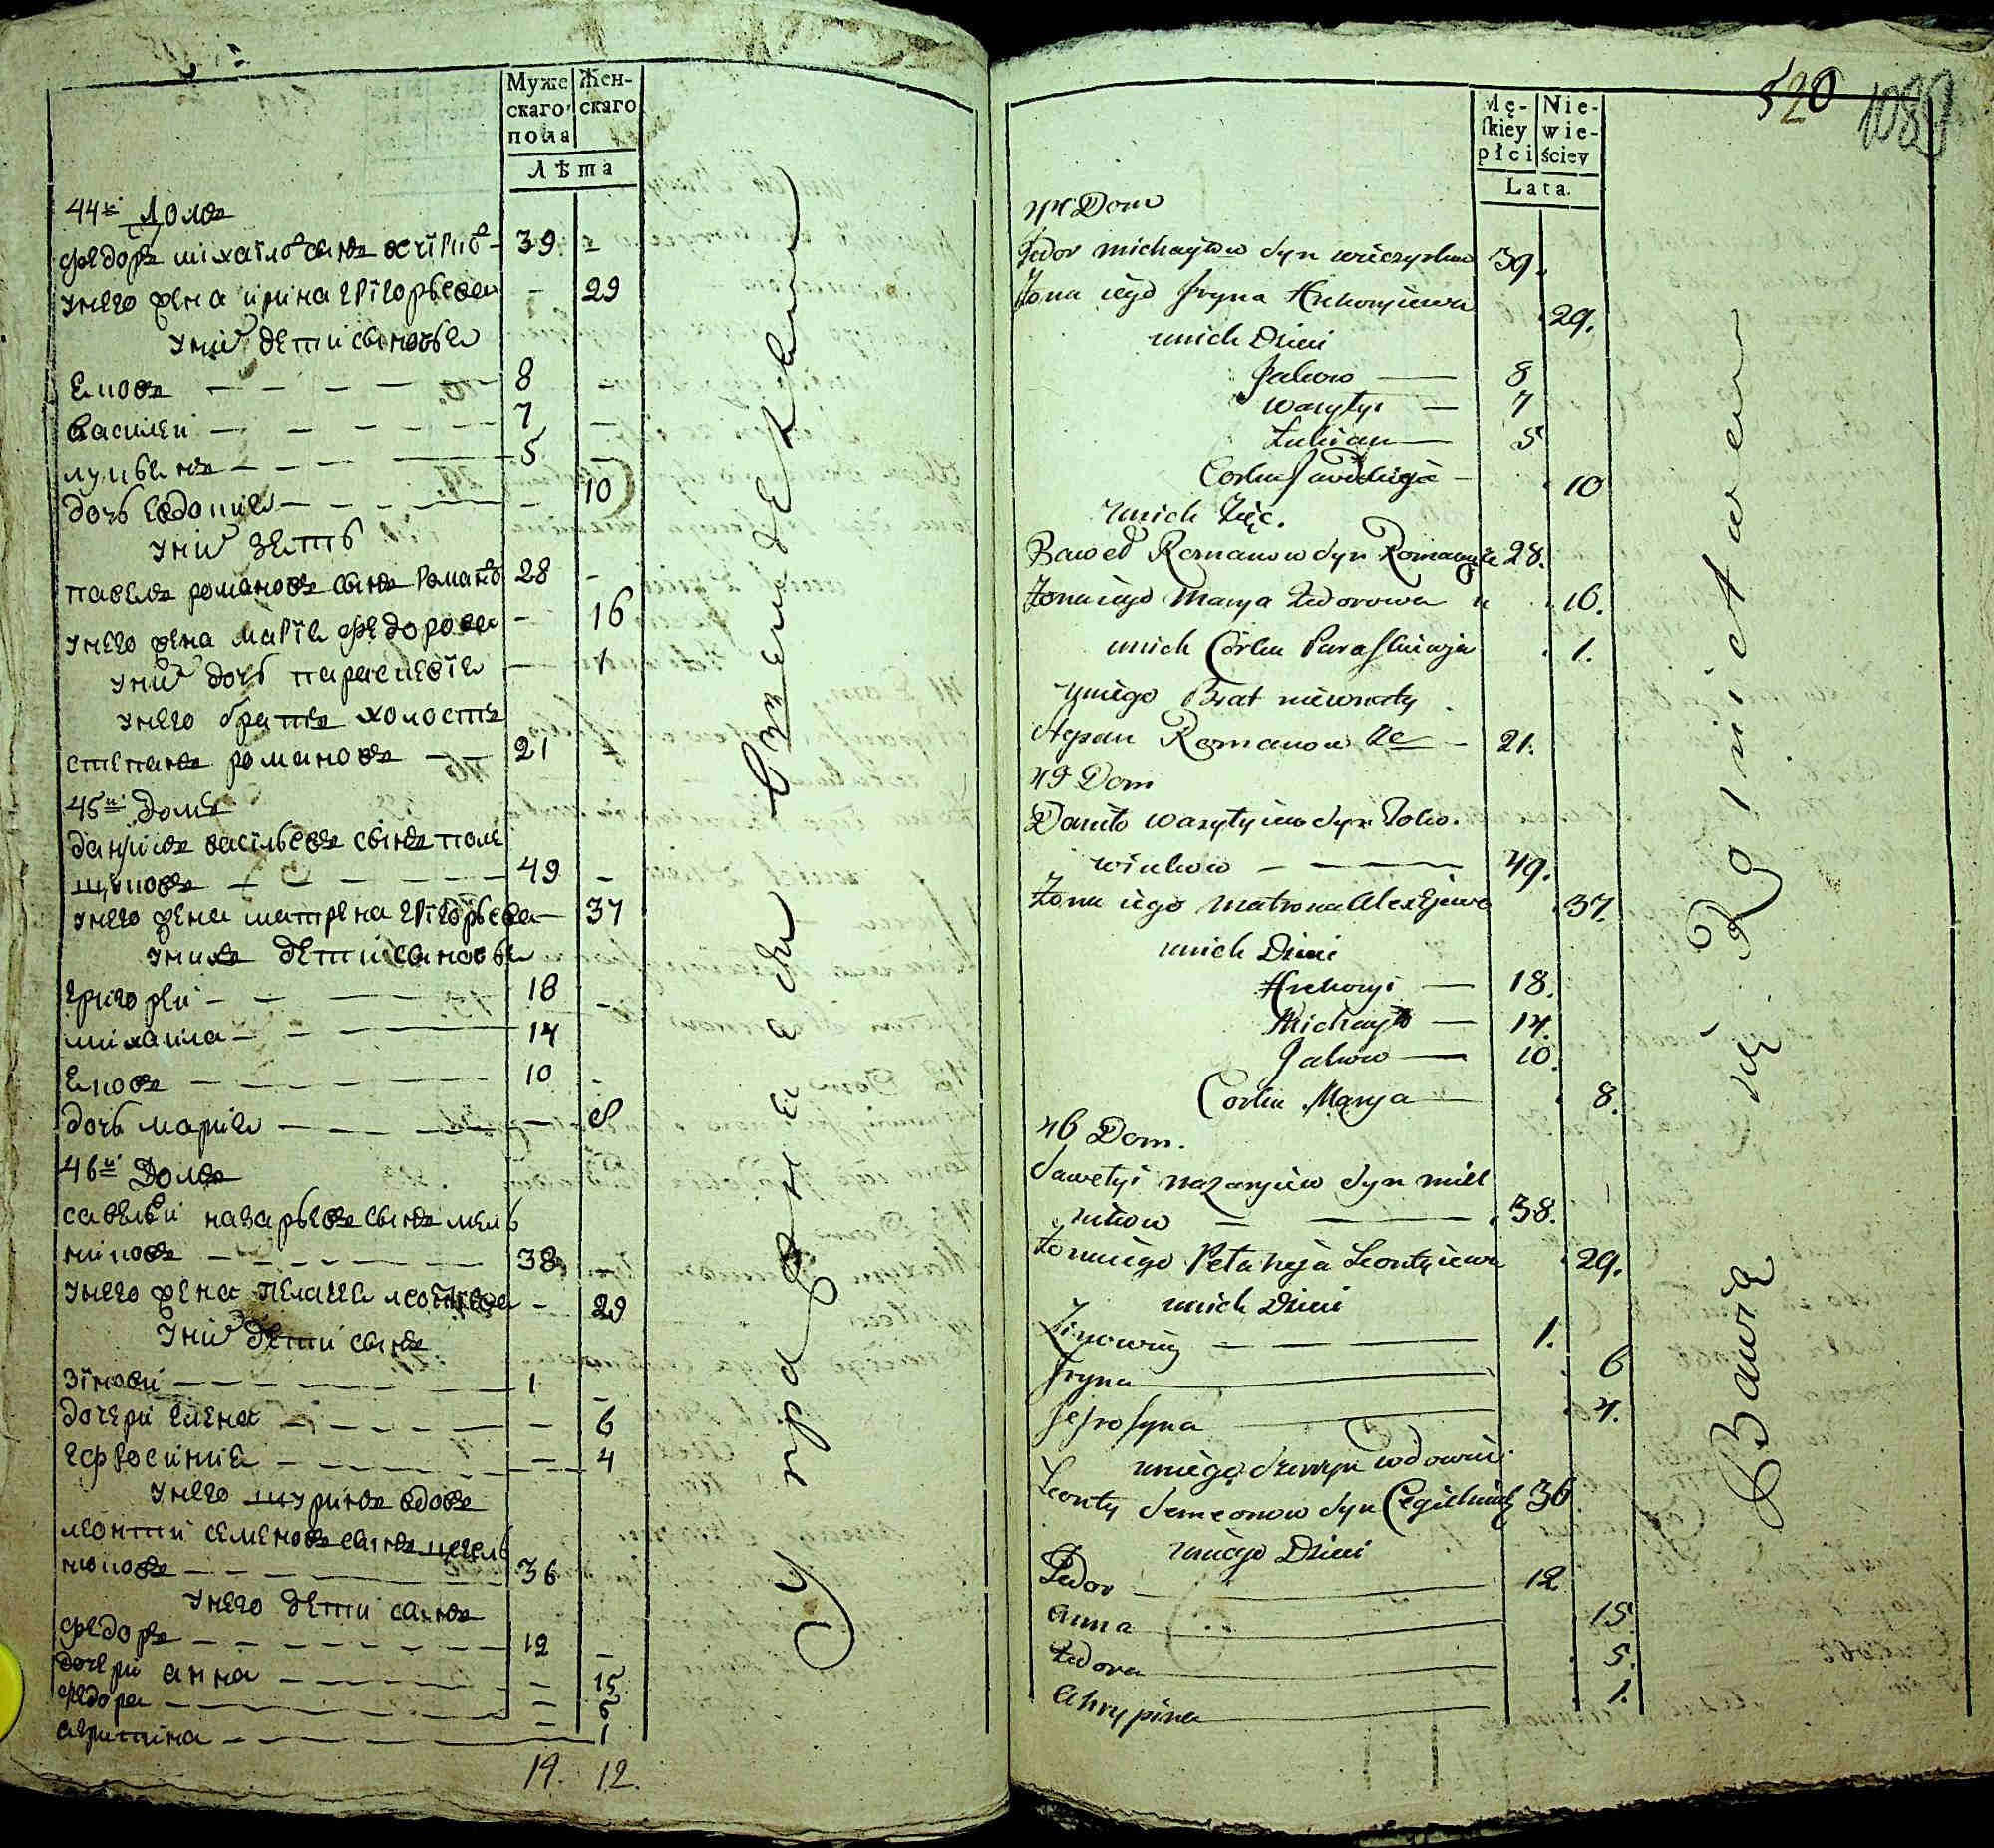 Муже
скаго
пола
Жен-
скаго
Лѣта
44й Домъ
федоръ михаиловъ сынъ 39
у него жена ирина григорьева 29
у них дети сыновья
яковъ 8
василеи 7
лукьянъ 5
дочь евдокия 10
у них зять
павелъ романовъ сынъ романов 28
у него жена мария федорова 16
у них дочь параскевия 1
у него братъ холостъ
степанъ романовъ 21
45й домъ
данилъ васильевъ сынъ поле
щуковъ 49
у него жена матрена григорьева 37
у нихъ дети сыновья
григореи 18
михаила 14
яковъ 10
дочь мария 8
46й Домъ
савелеи назарьевъ сынъ мель
никовъ 38
у него жена пелагея леонтьева 29
у них дети сынъ
зиновеи 1
дочери елена 6
ефросиния 4
у него шуринъ вдовъ
леонтии семеновъ сынъ цегель
никовъ 36
у него дети сынъ
федоръ 12
дочери анна 15
федора 5
агрипина 1
19. 12.
520
1089
Mę-
skiey
płci
Nie-
wie-
ściey
Lata.
44 Dom
Fedor michayłow Syn 39.
Żona iego Iryna Hrehoryiewa 29.
unich Dzieci
Jakow 8
wasylyi 7
Łukian 5
Corka Jawdokija 10
unich Zięć.
Paweł Romanow Syn 28.
Żona iego Marya Fedorowa 16.
unich Córka Paraskiewja 1.
yniego Brat nieżonaty
Stepan Romanow 21.
45 Dom
Daniło wasylyiew Syn Polo.
winkow 49.
Żona iego Matrona Alexiejewa 37.
unich Dzieci
Hrehoryi 18.
Michayło 14.
Jakow 10.
Corka Marya 8.
46 Dom.
Sawelyi nazaryiew Syn miel
nikow 38.
Żona iego Pelahija Leontyiewa 29.
unich Dzieci
Zinowiy 1.
Iryna 6
Jefrosyna 4.
uniego Szwagr wdowiec
Leonty Semeonow Syn Cegielnik 36
uniego Dzieci
Fedor 12
Anna 15.
Fedora 5.
Ahrypina 1.